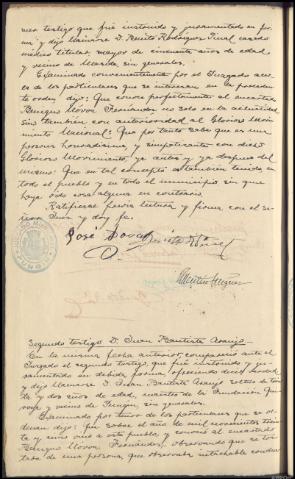 mer testigo que fué instruido y juramentado en for-
ma y dijo llamarse D. Benito Rodriguez Vinal casado
médico titular, mayor de cincuenta años de edad
y vecino de sin generales.
Examinado convenientemente por el Juzgado acer-
ca de los particulares que se interesan en la preceden-
te orden dijo: Que conoce perfectamente al encartado
Benigno Fernandez no solo en la actualidad
sino tambien con anterioridad al Glorioso Movi-
miento Nacional: Que por tanto sabe que es una
persona honradisima, y simpatizante con dicho
Glorioso Movimiento, ya antes y ya despues del
mismo: Que en tal concepto es tambien tenido en
todo el pueblo y en todo el municipio sin que
haya cosa alguna en contrario.
Ratificase previa lectura y firma con el se-
ñor Juez y doy fe.
José
Segundo testigo D. Juan Bautista Araujo.-
En la misma fecha anterior, compareció ante el
Juzgado el segundo testigo, que fué instruido y ju-
ramentado en debida forma, ofreciendo decir verdad
y dijo llamarse D. Juan Bautista Araujo soltero de trein-
ta y dos años de edad, maestro de la Fundación
y vecino de sin generales.
Examinado por tenor de los particulares que se or-
denan dijo: que sobre el año de mil novecientos trein-
ta y vino a este pueblo, y conoció al encartado
Benigno Fernandez, observando que se tra-
taba de una persona, que observaba intachable conduc-